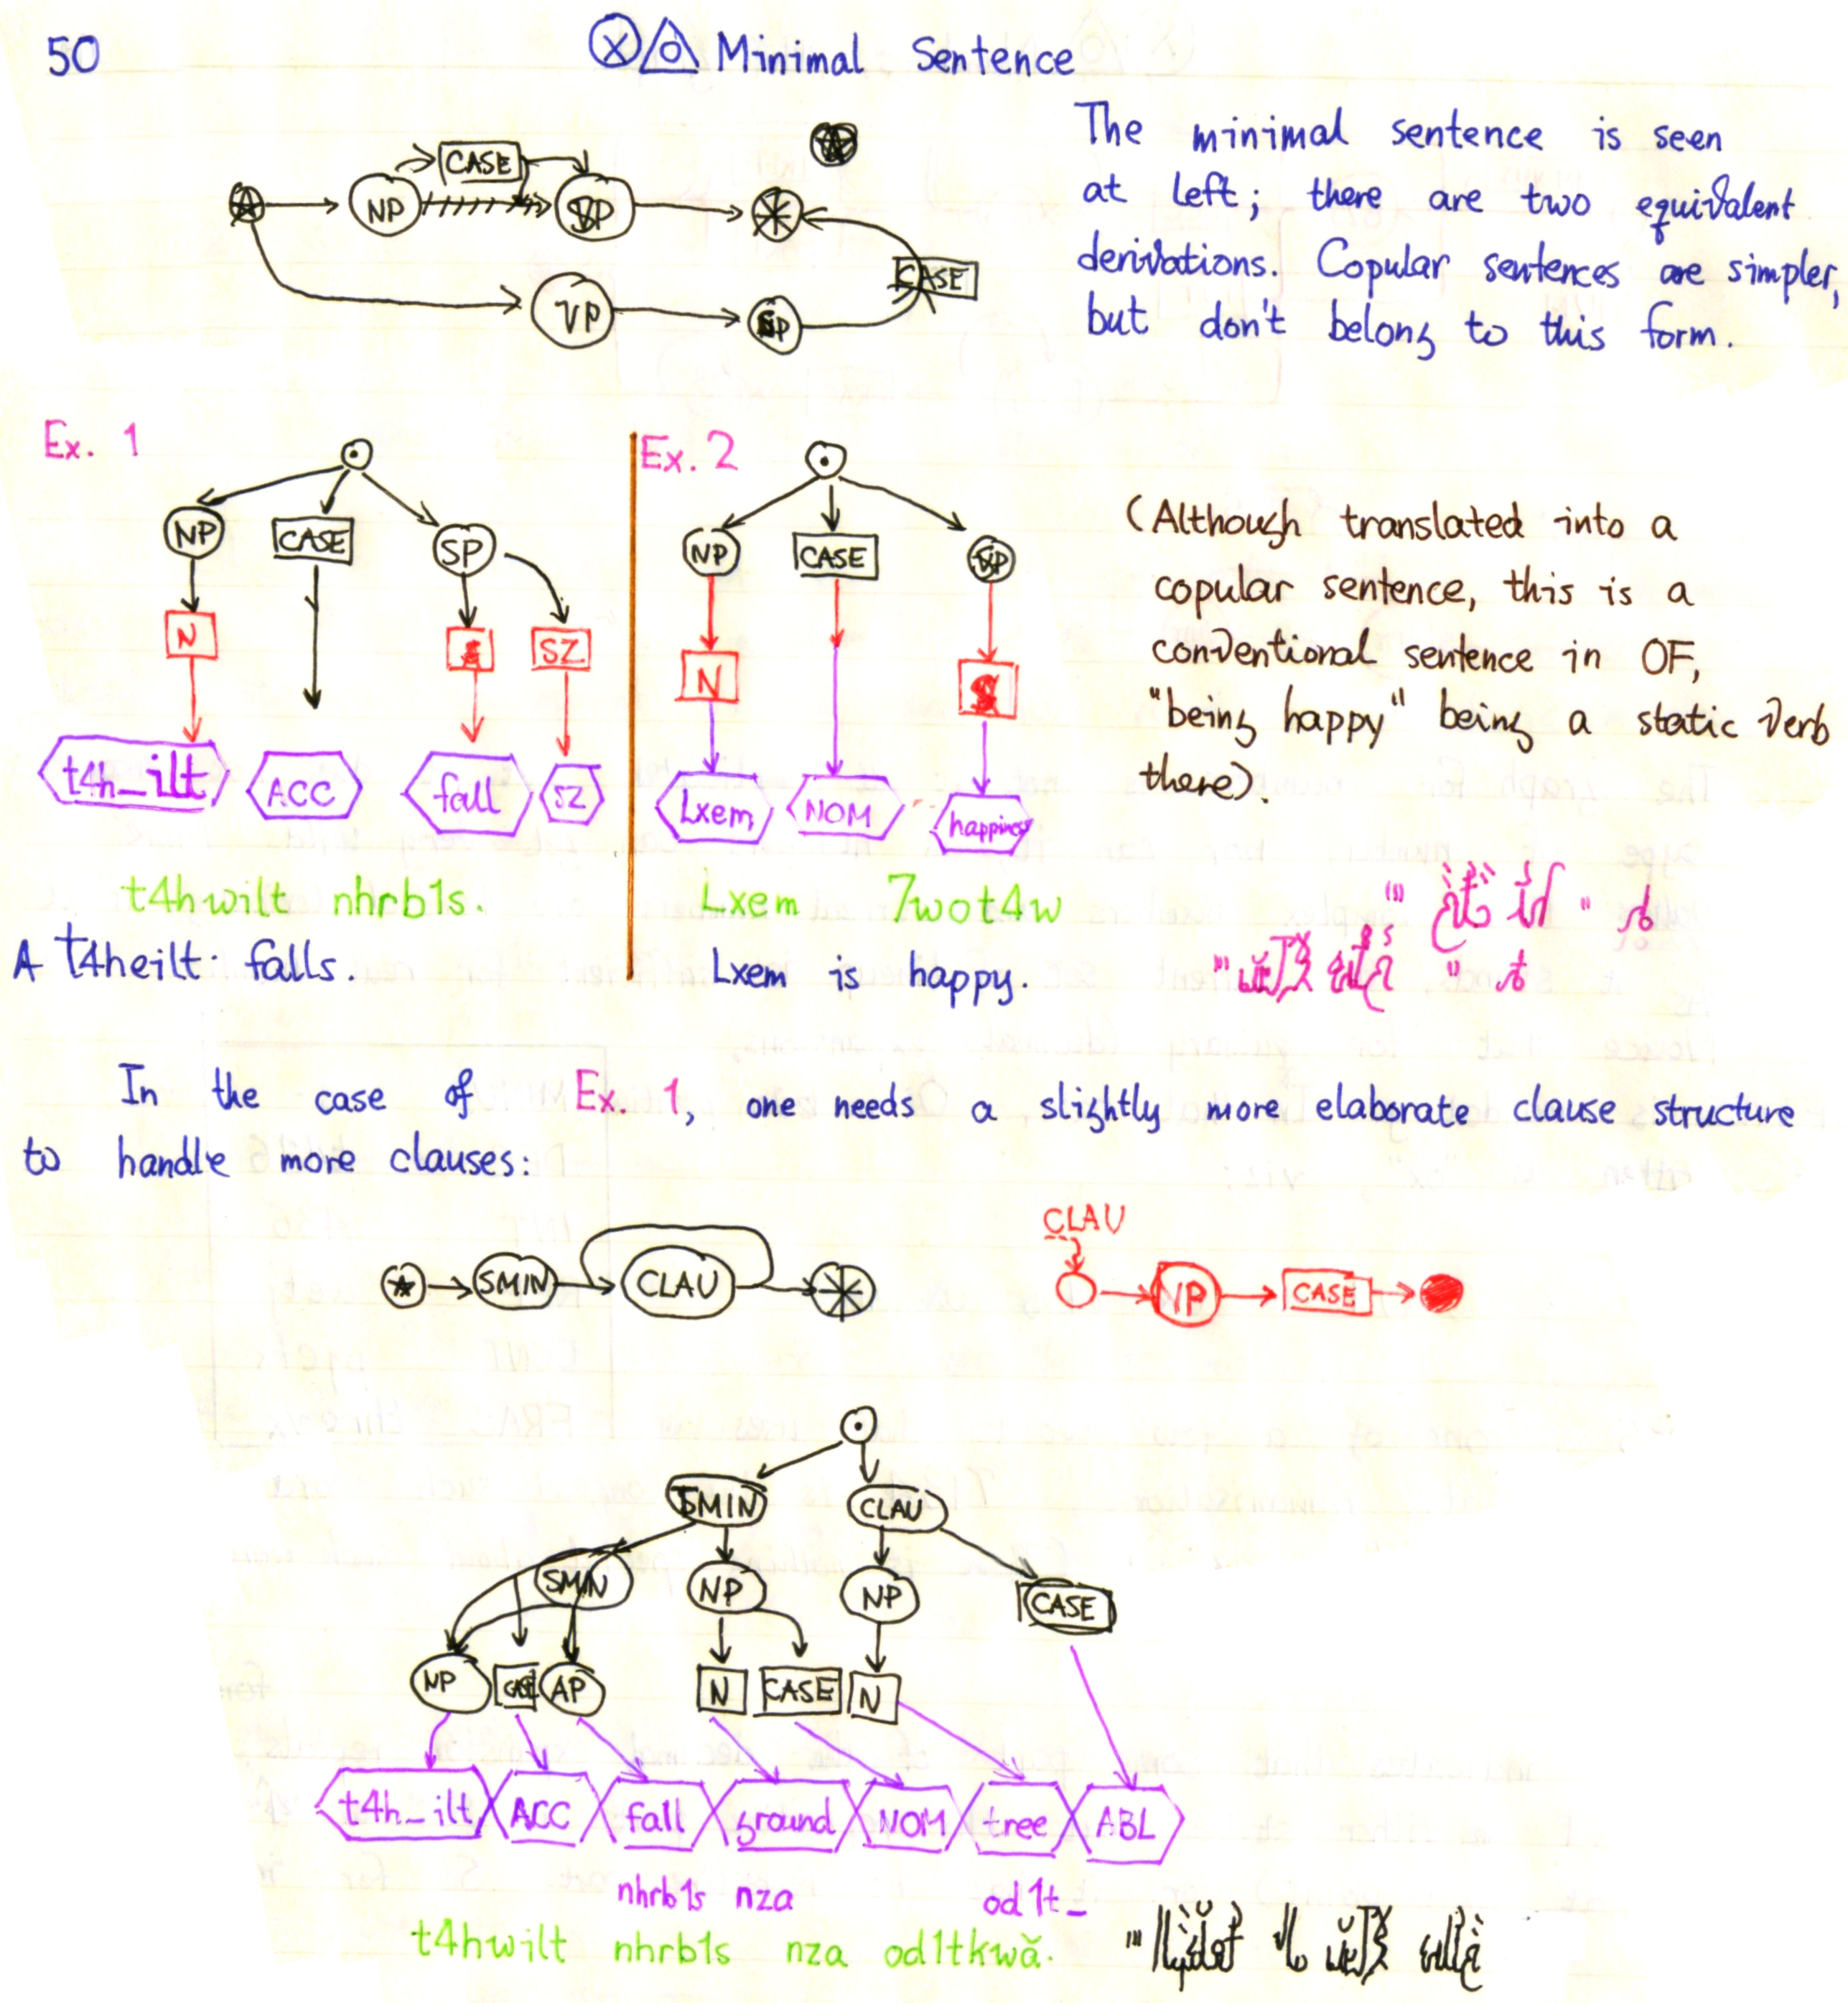 50
Minimal Sentence
The minimal sentence is seen
at left; there are two equivalent
derivations. Copular sentences are simpler,
but don't belong to this form.
CASE
NP
VP
CASE
Ex. 1
NP CASE SP
N SZ
t4h_ilt ACC fall SZ
t4hwilt nhrb1s.
A t4heilt falls.
Ex. 2
NP CASE
N
Lxem NOM happiness
Lxem 7wot4w
Lxem is happy.
(Although translated into a
copular sentence, this is a
conventional sentence in OF,
"being happy" being a static verb
there).
In the case of Ex. 1, one needs a slightly more elaborate clause structure
to handle more clauses:
SMIN CLAU
CLAU
NP CASE
SMIN CLAU
SMIN NP NP CASE
NP CASE AP N CASE N
t4h_ilt ACC fall ground NOM tree ABL
nhrb1s nza od1t_
t4hwilt nhrb1s nza od1tkwă.